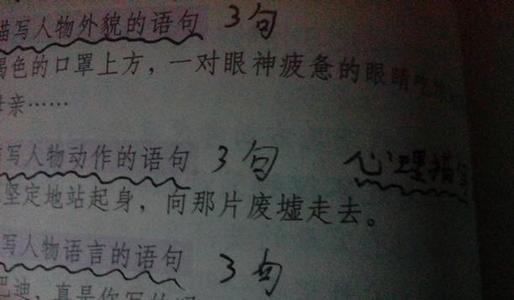 描写人物外貌的语句 3句
褐色的口罩上方，一对眼神疲惫的眼睛吃
母亲……
描写人物动作的语句 3句 心理描写
坚定地站起身，向那片废墟走去。
写人物语言的语句 3句
巴迪，真是你写的